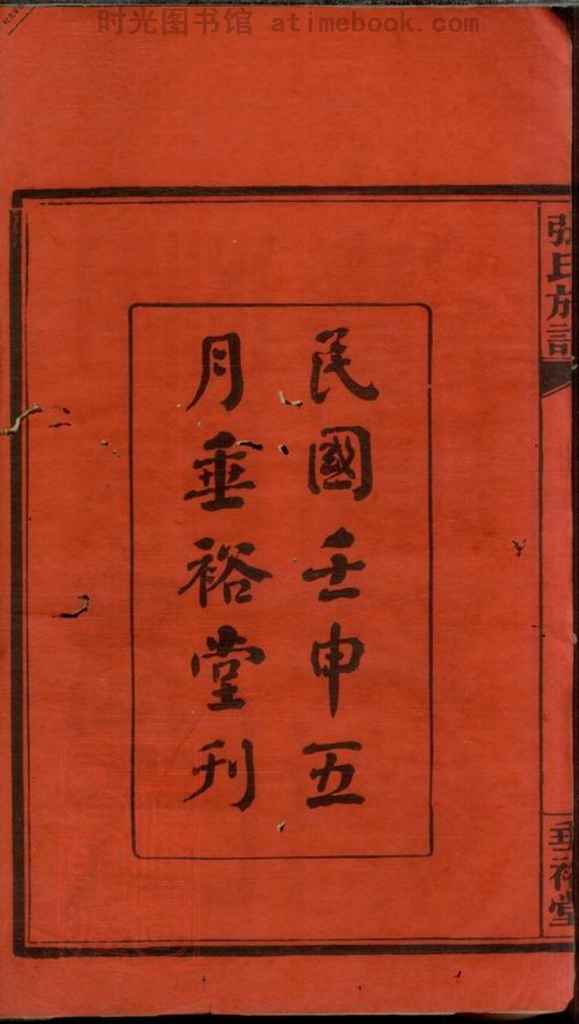 时光图书馆 atimebook.com
民國壬申五
月垂裕堂刊
張氏族譜
垂裕堂